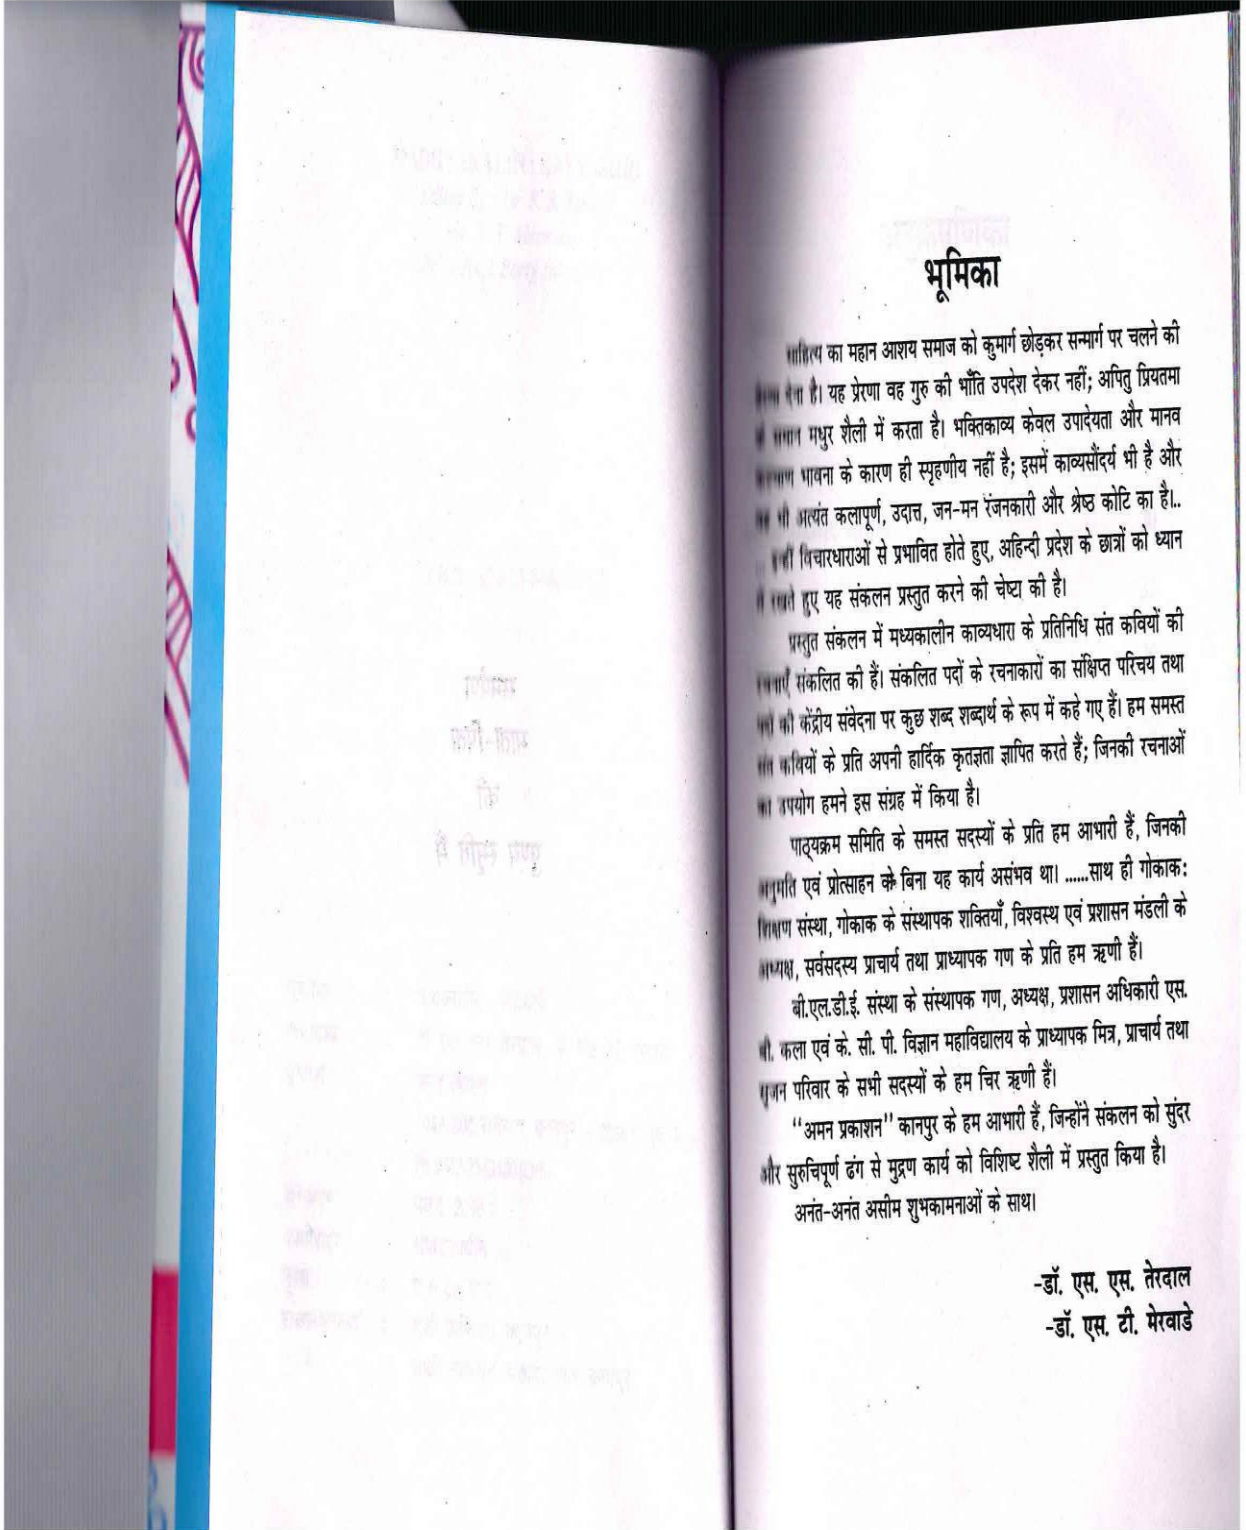 भूमिका
साहित्य का महान आशय समाज को कुमार्ग छोड़कर सन्मार्ग पर चलने की
प्रेरणा देना है। यह प्रेरणा वह गुरु की भाँति उपदेश देकर नहीं; अपितु प्रियतमा
के समान मधुर शैली में करता है। भक्तिकाव्य केवल उपादेयता और मानव
कल्याण भावना के कारण ही स्पृहणीय नहीं है; इसमें काव्यसौंदर्य भी है और
वह भी अत्यंत कलापूर्ण, उदात्त, जन-मन रंजनकारी और श्रेष्ठ कोटि का है।..
इन्हीं विचारधाराओं से प्रभावित होते हुए, अहिन्दी प्रदेश के छात्रों को ध्यान
में रखते हुए यह संकलन प्रस्तुत करने की चेष्टा की है।
प्रस्तुत संकलन में मध्यकालीन काव्यधारा के प्रतिनिधि संत कवियों की
रचनाएँ संकलित की हैं। संकलित पदों के रचनाकारों का संक्षिप्त परिचय तथा
पदों की केंद्रीय संवेदना पर कुछ शब्द शब्दार्थ के रूप में कहे गए हैं। हम समस्त
संत कवियों के प्रति अपनी हार्दिक कृतज्ञता ज्ञापित करते हैं; जिनकी रचनाओं
का उपयोग हमने इस संग्रह में किया है।
पाठ्यक्रम समिति के समस्त सदस्यों के प्रति हम आभारी हैं, जिनकी
अनुमति एवं प्रोत्साहन के बिना यह कार्य असंभव था। ......साथ ही गोकाक:
शिक्षण संस्था, गोकाक के संस्थापक शक्तियाँ, विश्वस्थ एवं प्रशासन मंडली के
अध्यक्ष, सर्वसदस्य प्राचार्य तथा प्राध्यापक गण के प्रति हम ऋणी हैं।
बी.एल.डी.ई. संस्था के संस्थापक गण, अध्यक्ष, प्रशासन अधिकारी एस.
बी. कला एवं के. सी. पी. विज्ञान महाविद्यालय के प्राध्यापक मित्र, प्राचार्य तथा
सृजन परिवार के सभी सदस्यों के हम चिर ऋणी हैं।
“अमन प्रकाशन” कानपुर के हम आभारी हैं, जिन्होंने संकलन को सुंदर
और सुरुचिपूर्ण ढंग से मुद्रण कार्य को विशिष्ट शैली में प्रस्तुत किया है।
अनंत-अनंत असीम शुभकामनाओं के साथ।
-डॉ. एस. एस. तेरदाल
-डॉ. एस. टी. मेरवाडे